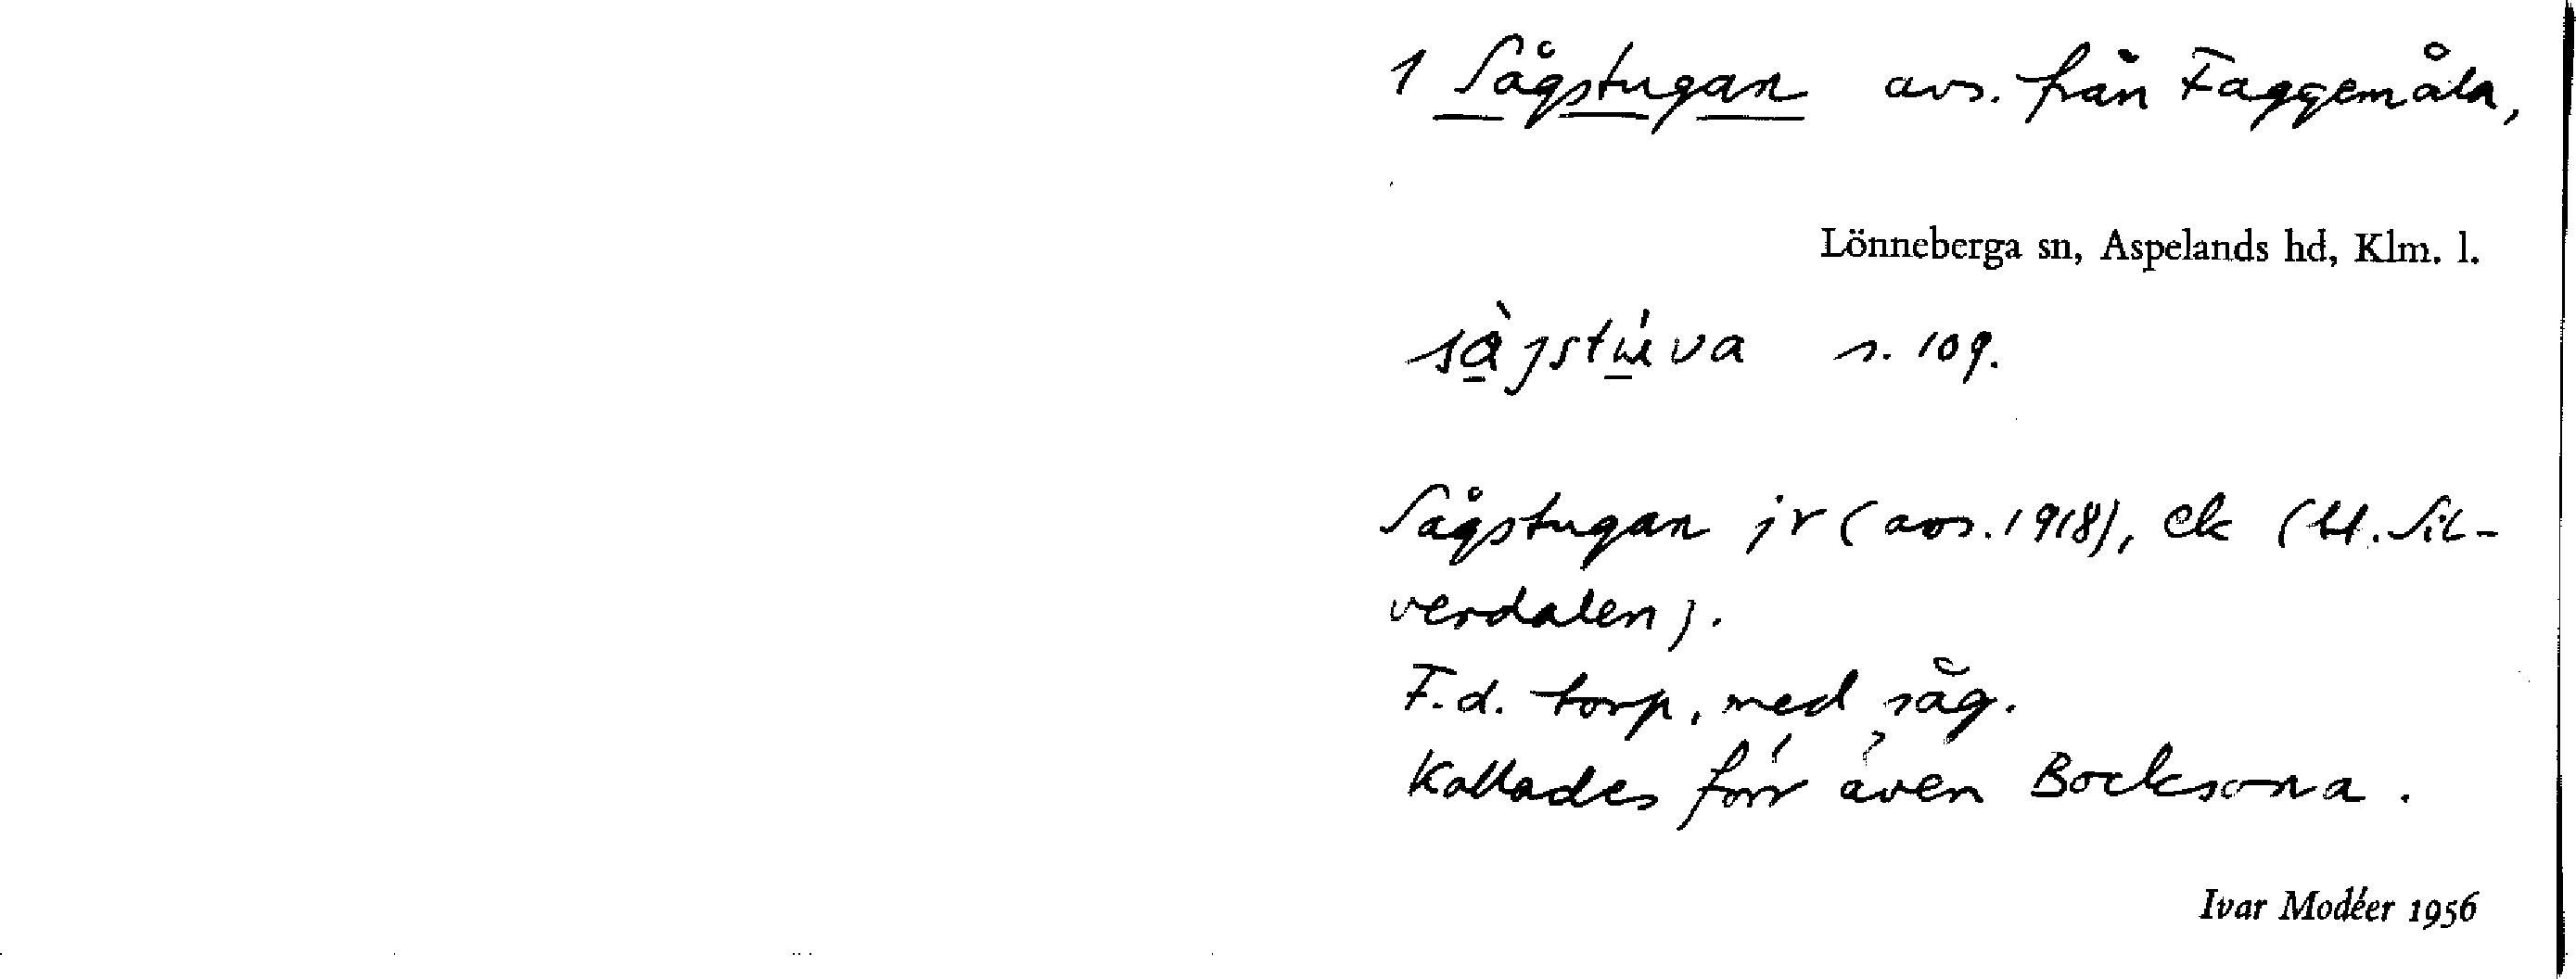 1 Sågstugan avs. från Faggemåla,
Lönneberga sn, Aspelands hd, Klm. l.
sàgstúva s. 109.
Sågstugan jr (avs. 1918), ek (bl. Sil-
verdalen).
F.d. torp, med såg.
Kallades förr även Bocksona.
Ivar Modéer 1956